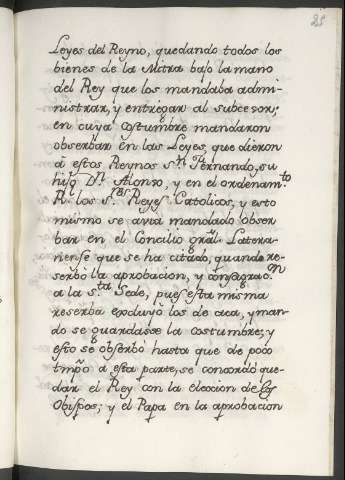 25
Leyes del Reyno, quedando todos los
bienes de la Mitra bajo la mano
del Rey que los mandaba admi-
nistrar, y entregar al subcesor;
en cuya costumbre mandaron
obserbar en las Leyes, que dieron
â estos Reynos Sn. Fernando, su
hijo Dn. Alonso, y en el ordenamto.
Rl. los Sres. Reyes Catolicos, y esto
mismo se avia mandado obser
bar en el Concilio gral. Latera-
nense que se ha citado, quando re-
serbò la aprobacion, y consagracon
a la Sta. Sede, pues esta misma
reserba excluyò los de aca, y man-
do se guardase la costumbre; y
esto se obserbò hasta que de poco
tmpo. a esta parte, se concordò que-
dar el Rey con la eleccion de los
Obispos; y el Papa en la aprobacion